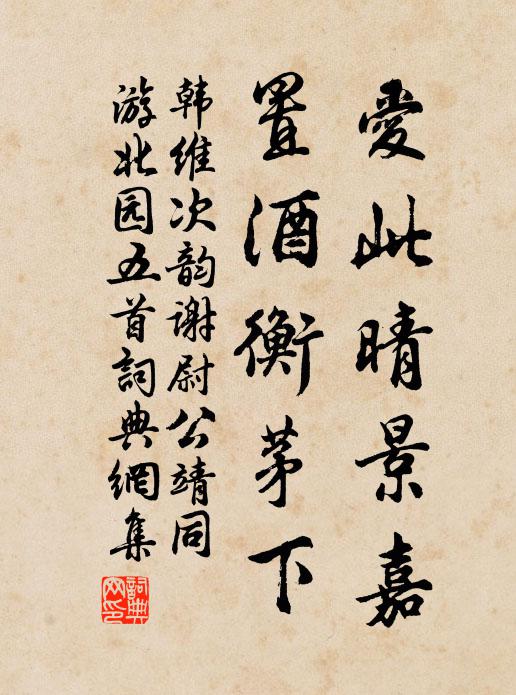 愛此晴景嘉
置酒衡茅下
韩维次韵谢尉公靖同
游北园五首詞典網集
詞典网印